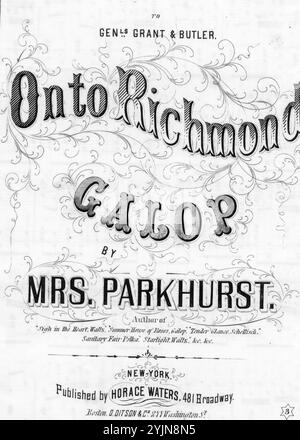 TO
GENLS GRANT & BUTLER.
Onto Richmond
GALOP
BY
MRS. PARKHURST.
Author of
"Sigh in the Heart, Waltz," "Summer House of Roses, Galop," "Tender Glance, Schottisch."
Sanitary Fair Polka." Starlight Waltz." &c. &c.
NEW-YORK.
Published by HORACE WATERS, 481 Broadway.
Boston. O. DITSON & Co. 277 Washington St.
3
alamy
Image ID: 2YJN8N5
www.alamy.com